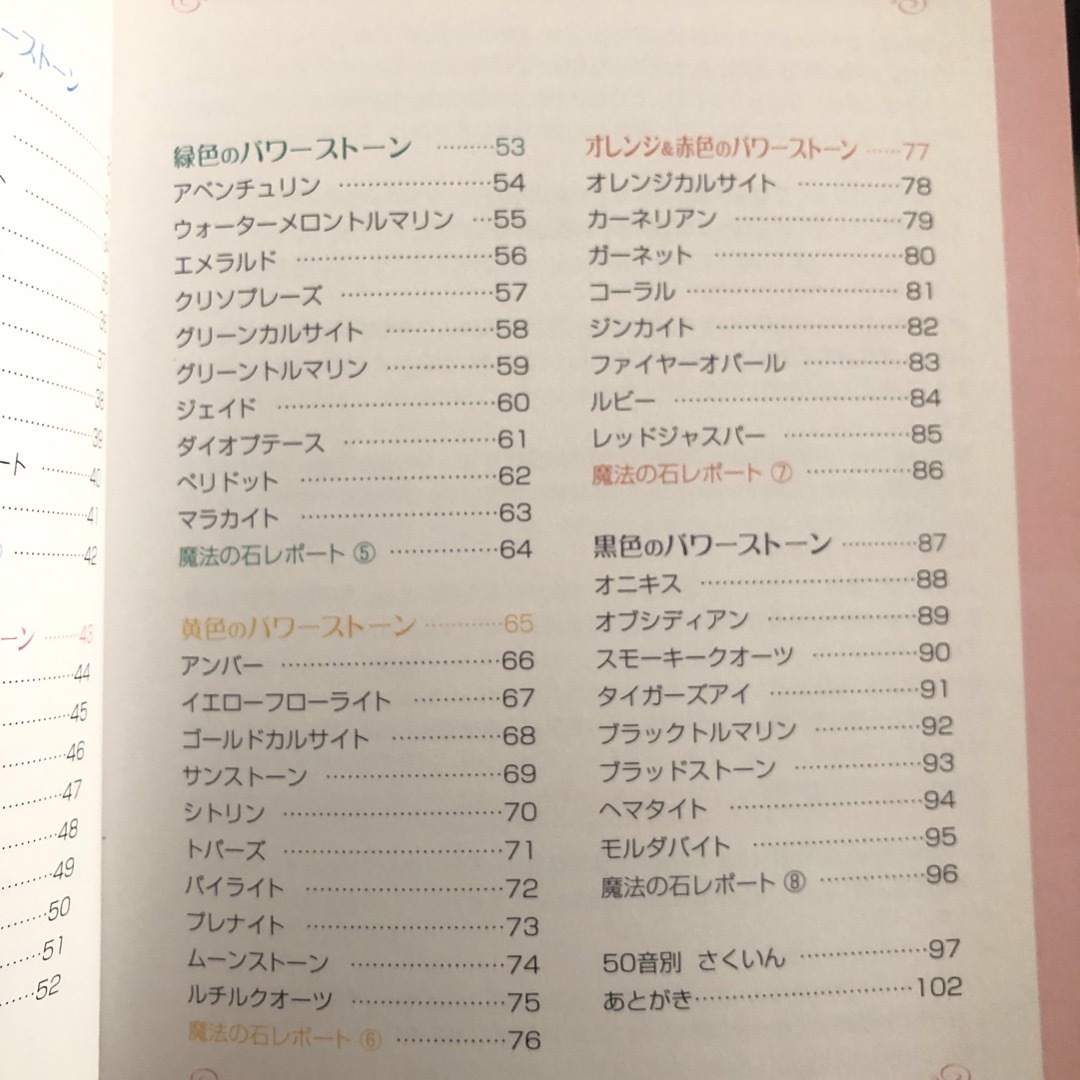 ーストーン
ート ………40
41
42
ーン ………43
44
45
46
47
48
49
50
51
52
緑色のパワーストーン ………53
アベンチュリン ………54
ウォーターメロントルマリン …55
エメラルド ………56
クリソプレーズ ………57
グリーンカルサイト ………58
グリーントルマリン ………59
ジェイド ………60
ダイオプテース ………61
ペリドット ………62
マラカイト ………63
魔法の石レポート ⑤ ………64
黄色のパワーストーン ………65
アンバー ………66
イエローフローライト ………67
ゴールドカルサイト ………68
サンストーン ………69
シトリン ………70
トパーズ ………71
パイライト ………72
プレナイト ………73
ムーンストーン ………74
ルチルクオーツ ………75
魔法の石レポート ⑥ ………76
オレンジ&赤色のパワーストーン ……77
オレンジカルサイト ………78
カーネリアン ………79
ガーネット ………80
コーラル ………81
ジンカイト ………82
ファイヤーオパール ………83
ルビー ………84
レッドジャスパー ………85
魔法の石レポート ⑦ ………86
黒色のパワーストーン ………87
オニキス ………88
オブシディアン ………89
スモーキークオーツ ………90
タイガーズアイ ………91
ブラックトルマリン ………92
ブラッドストーン ………93
ヘマタイト ………94
モルダバイト ………95
魔法の石レポート ⑧ ………96
50音別 さくいん ………97
あとがき ………102